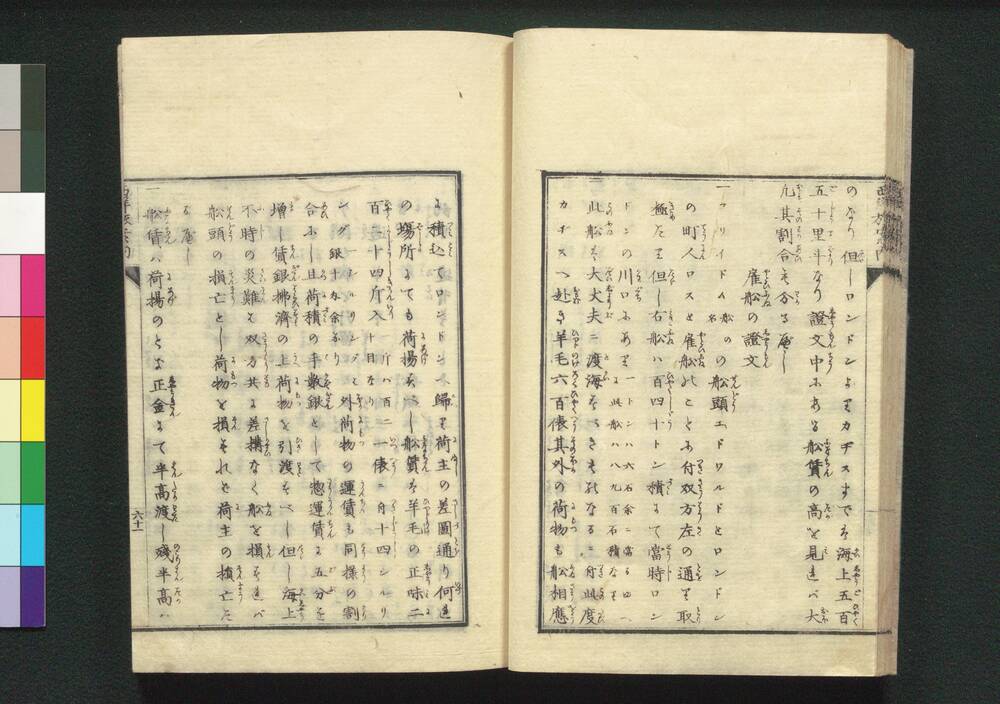 のなり但しロンドンよりカヂスまでは海上五百
五十里斗なり證文中にある船賃の高を見れバ大
凡其割合を分る應し
雇船の證文
一フリイドム船の名の船頭エドワルドとロンドン
の町人ロスと雇船のことに付双方左の通り取
極たり但し右船ハ百四十トン積にて當時ロン
ドンの川口にあり一トンハ六石余ニ當るゆへ
此船ハ八九百石積なり
一此船を大丈夫ニ渡海すべきものなるニ付此度
カヂスへ赴き羊毛六百俵其外の荷物も船相應
に積込てロンドンへ歸り荷主の差圖通り何れ
の場所にても荷揚すべし船賃は羊毛の正味二
百二十四斤入一斤ハ百二十目なり一俵ニ付十四シルリ
ング一シルリングハ銀十匁余なり外荷物の運賃も同様の割
合ニし且荷積の手數銀として惣運賃に五分を
増し賃銀拂濟の上荷物を引渡すべし但し海上
不時の災難は双方共に差構なく船を損すれバ
船頭の損亡とし荷物を損すれは荷主の損亡た
る應し
一船賃ハ荷揚のとき正金にて半高渡し殘半高ハ
六十一